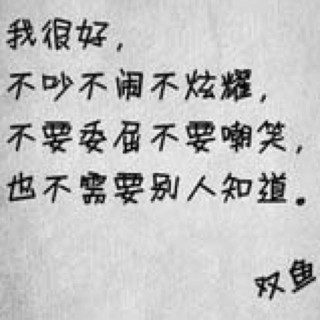 我很好，
不吵不闹不炫耀，
不要委屈不要嘲笑，
也不需要别人知道。
双鱼